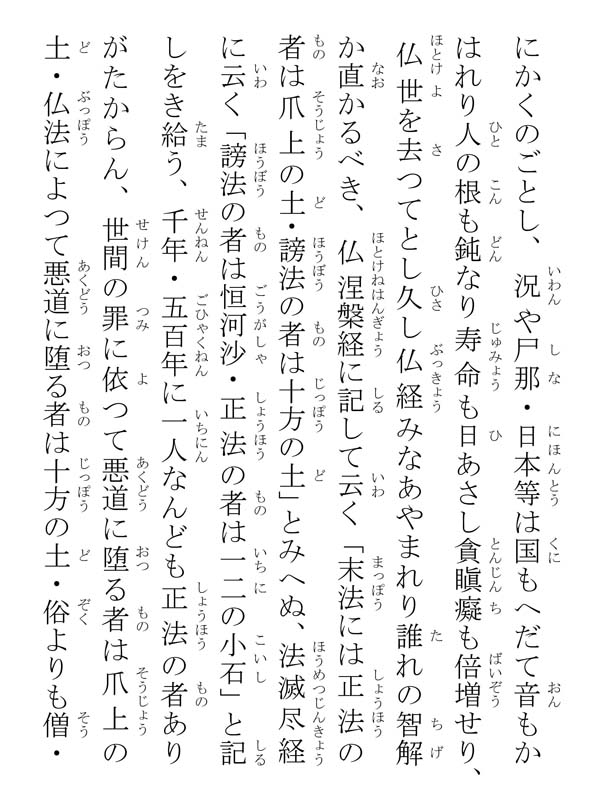 にかくのごとし、況や尸那・日本等は国もへだて音もか
はれり人の根も鈍なり寿命も日あさし貪瞋癡も倍増せり、
仏世を去つてとし久し仏経みなあやまれり誰れの智解
か直かるべき、仏涅槃経に記して云く「末法には正法の
者は爪上の土・謗法の者は十方の土」とみへぬ、法滅尽経
に云く「謗法の者は恒河沙・正法の者は一二の小石」と記
しをき給う、千年・五百年に一人なんども正法の者あり
がたからん、世間の罪に依つて悪道に堕る者は爪上の
土・仏法によつて悪道に堕る者は十方の土・俗よりも僧・